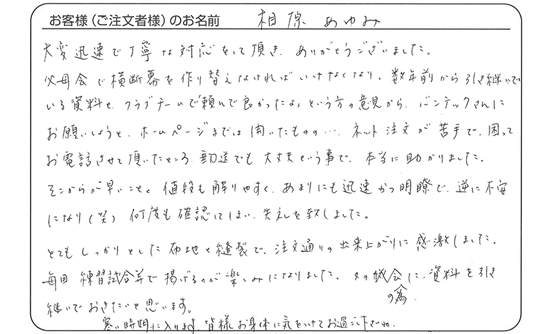 お客様(ご注文者様)のお名前 相原 あゆみ
大変迅速で丁寧な対応をして頂き、ありがとうございました。
父母会で横断幕を作り替えなければいけなくなり、数年前から引き継いで
いる資料と、クラブチームで頼んで良かったよという方の意見から、バンテックさんに
お願いしようと、ホームページまでは開いたものの…、ネット注文が苦手で、困って
お電話させて頂いたところ、郵送でも大丈夫という事で、本当に助かりました。
そこからが早いこと、値段も解りやすく、あまりにも迅速かつ明瞭で、逆に不安
になり(笑) 何度も確認してしまい、失礼を致しました。
とてもしっかりとした布地と縫製で、注文通りの出来上がりに感激しました。
毎回練習試合等で掲げるのが楽しみになりました。次の機会の為に、資料を引き
継いでおきたいと思います。
寒い時期に入ります。皆様お身体に気をつけてお過ごし下さいね。